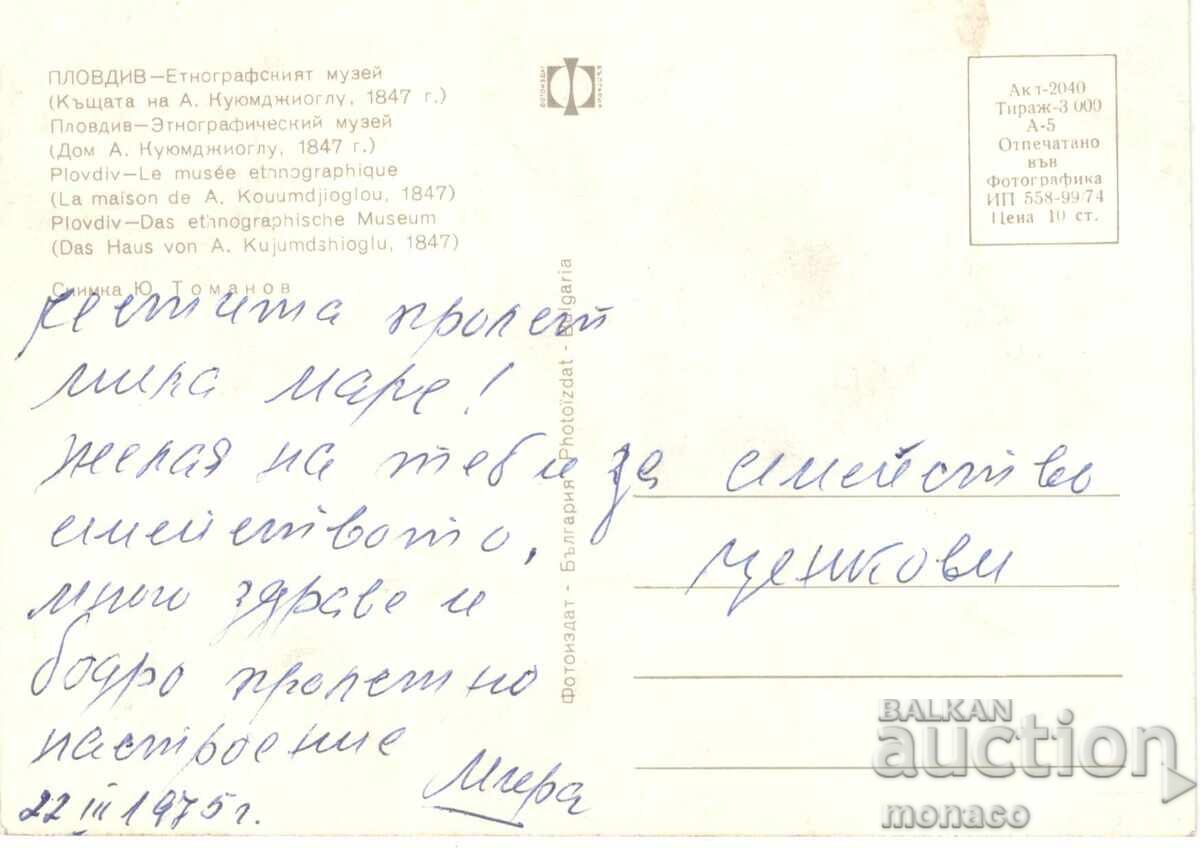 ПЛОВДИВ—Етнографският музей
(Къщата на А. Куюмджиоглу, 1847 г.)
Пловдив—Этнографический музей
(Дом А. Куюмджиоглу, 1847 г.)
Plovdiv—Le musée ethnographique
(La maison de A. Kouumdjioglou, 1847)
Plovdiv—Das ethnographische Museum
(Das Haus von A. Kujumdshioglu, 1847)
Снимка Ю. Томанов
Честита пролет
мила Маре!
Желая на теб и
семейството,
много здраве и
бодро пролетно
настроение
Мира
22 III 1975 г.
ФОТОИЗДАТ
БЪЛГАРИЯ
Фотоиздат - България - Photoïzdat - Bulgaria
Акт-2040
Тираж-3 000
А-5
Отпечатано
във
Фотографика
ИП 558-99/74
Цена 10 ст.
за семейство
Ценкови
BALKAN
auction
monaco